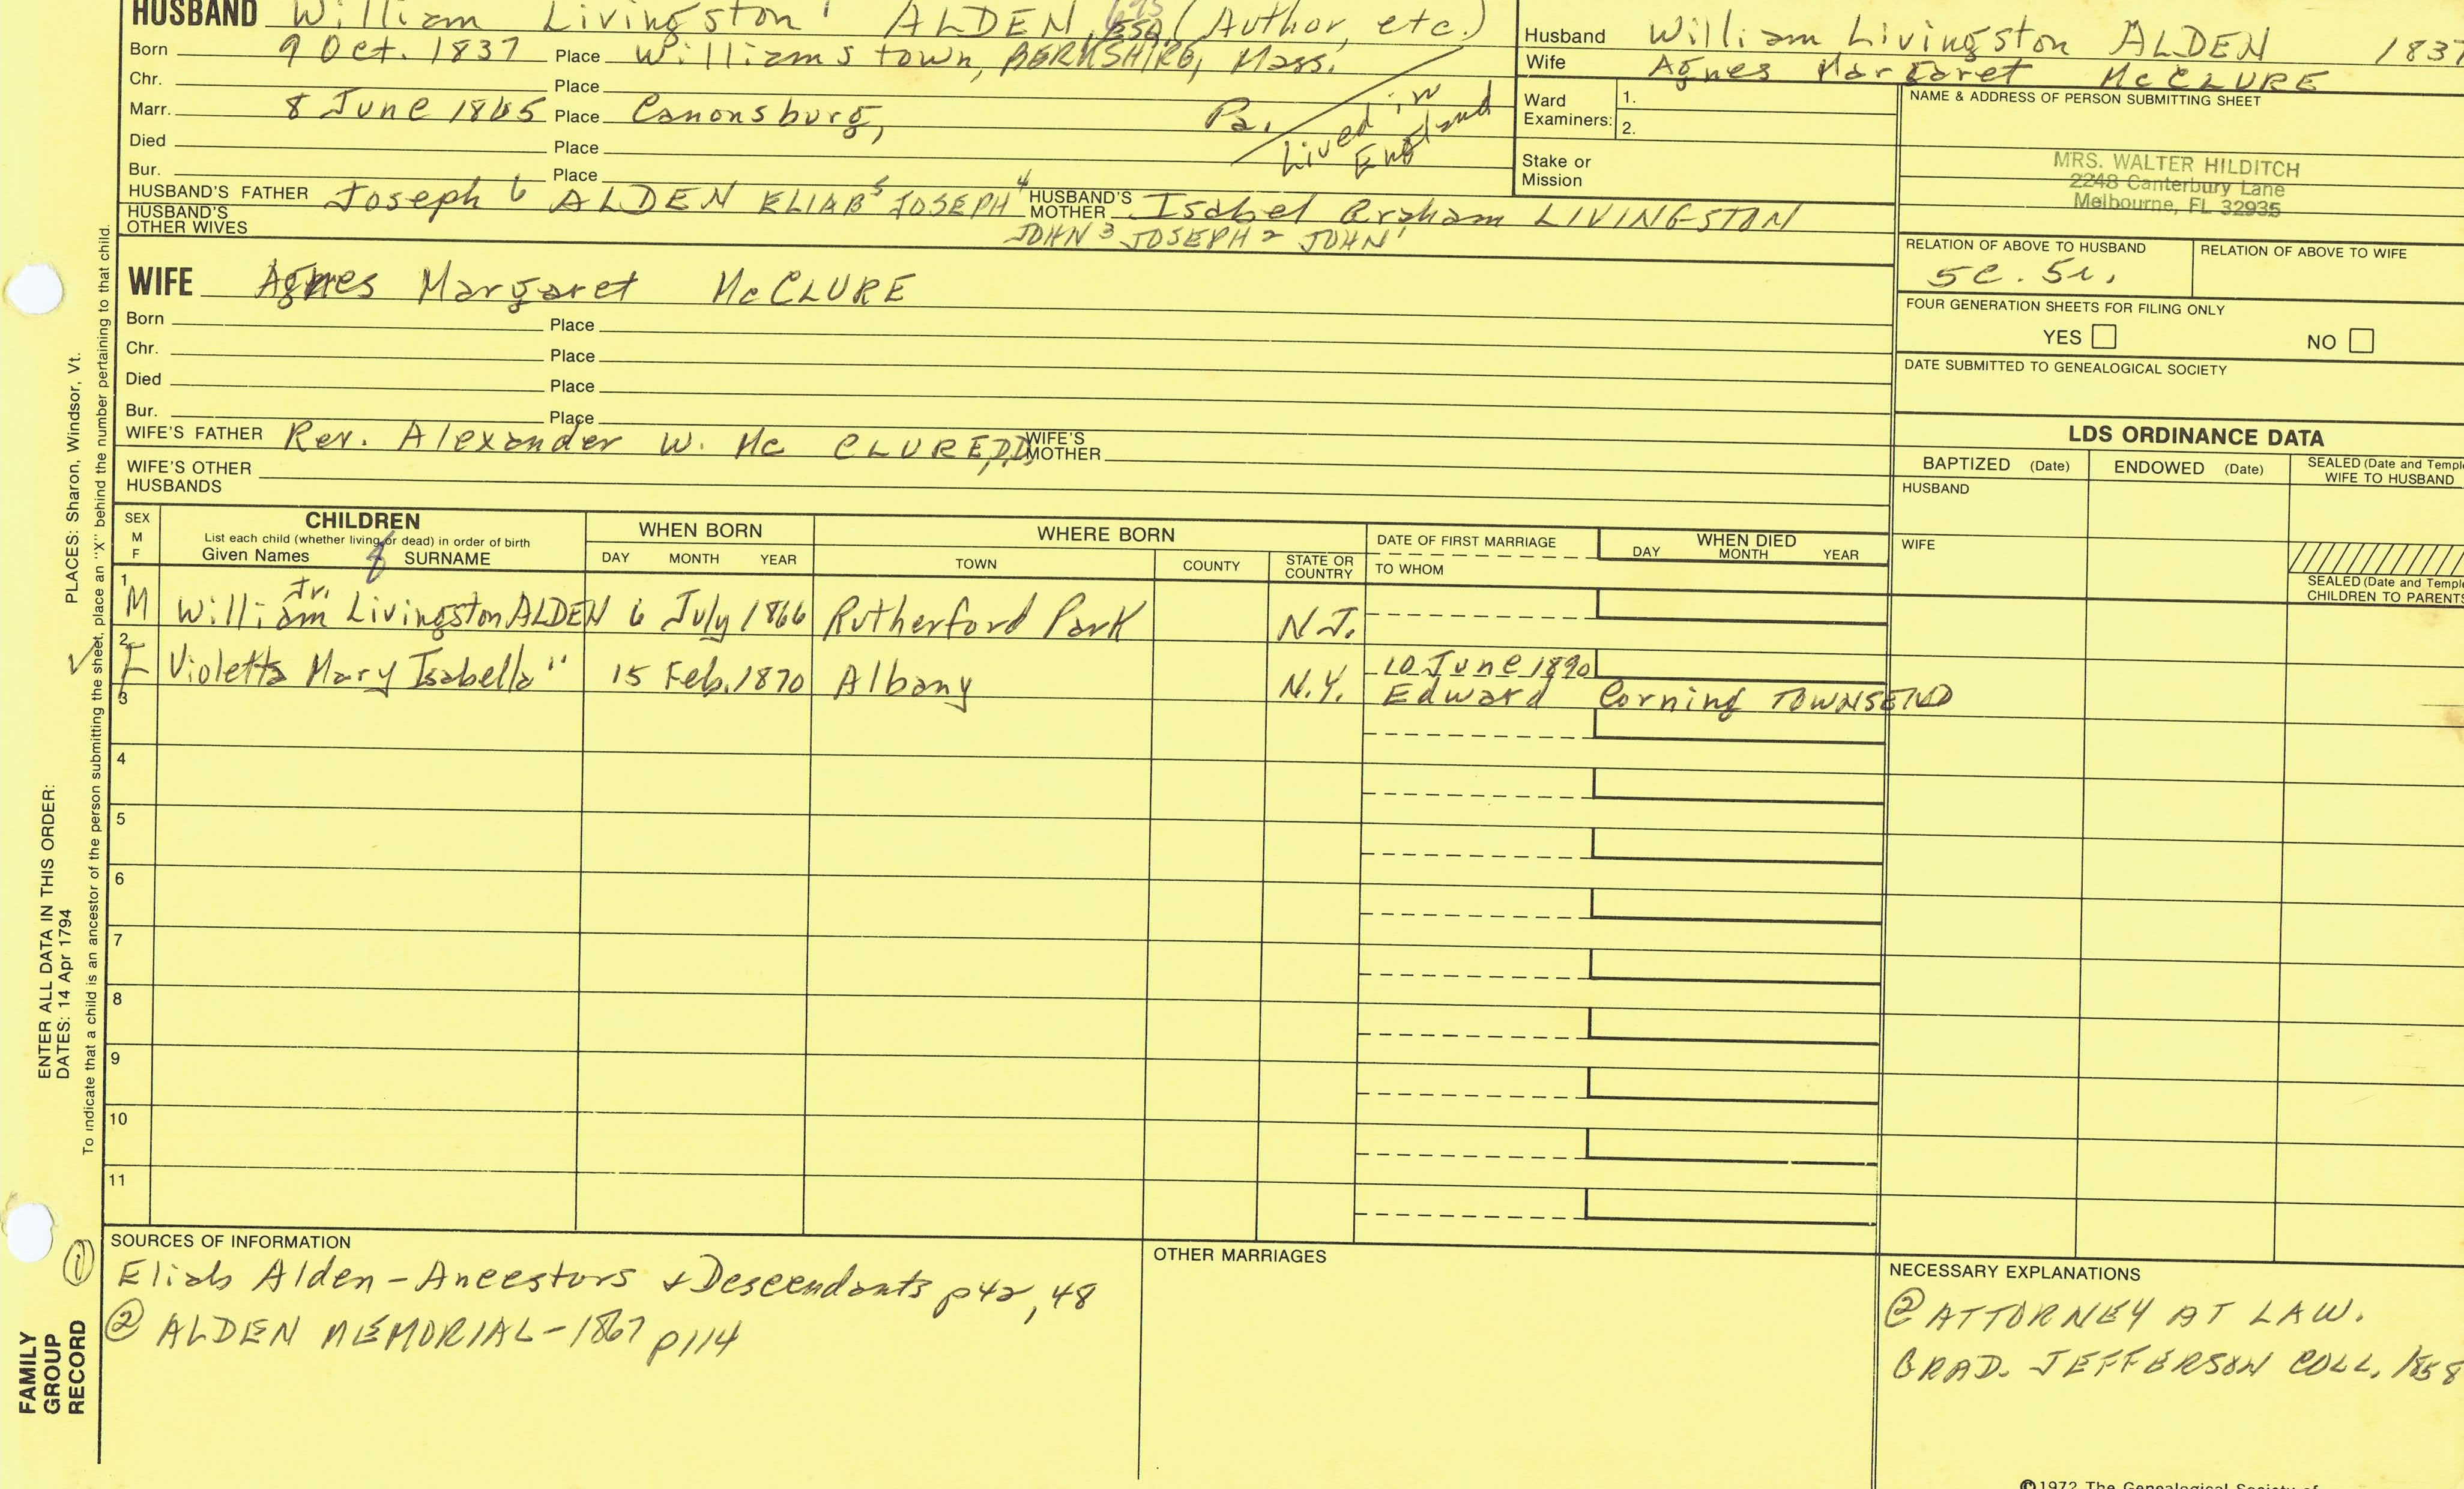 HUSBAND William Livingston ALDEN, ESQ. (Author, etc.)
Born 9 Oct. 1837 Place Williamstown, BERKSHIRE, Mass.
Chr. Place
Marr. 8 June 1865 Place Canonsburg, Pa. Lived in England
Died Place
Bur. Place
HUSBAND'S FATHER Joseph 6 ALDEN ELIAB 5 JOSEPH 4 HUSBAND'S MOTHER Isabel Graham LIVINGSTON
HUSBAND'S OTHER WIVES JOHN 3 JOSEPH 2 JOHN 1
WIFE Agnes Margaret McCLURE
Born Place
Chr. Place
Died Place
Bur. Place
WIFE'S FATHER Rev. Alexander W. Mc CLURE, D.D. WIFE'S MOTHER
WIFE'S OTHER HUSBANDS
Husband William Livingston ALDEN 1837
Wife Agnes Margaret McCLURE
Ward Examiners: 1.
2.
Stake or Mission
NAME & ADDRESS OF PERSON SUBMITTING SHEET
MRS. WALTER HILDITCH
2248 Canterbury Lane
Melbourne, FL 32935
RELATION OF ABOVE TO HUSBAND RELATION OF ABOVE TO WIFE
5C. 5r.
FOUR GENERATION SHEETS FOR FILING ONLY
YES NO
DATE SUBMITTED TO GENEALOGICAL SOCIETY
LDS ORDINANCE DATA
BAPTIZED (Date) ENDOWED (Date) SEALED (Date and Templ
WIFE TO HUSBAND
HUSBAND
WIFE
SEALED (Date and Templ
CHILDREN TO PARENTS
SEX M F CHILDREN WHEN BORN WHERE BORN DATE OF FIRST MARRIAGE WHEN DIED
List each child (whether living or dead) in order of birth
Given Names SURNAME DAY MONTH YEAR TOWN COUNTY STATE OR COUNTRY TO WHOM DAY MONTH YEAR
1 M William Livingston ALDEN Jr. 6 July 1866 Rutherford Park N.J.
2 F Violetta Mary Isabella " 15 Feb. 1870 Albany N.Y. 10 June 1890
Edward Corning TOWNSEND
3
4
5
6
7
8
9
10
11
SOURCES OF INFORMATION
① Eliab Alden - Ancestors & Descendants p42, 48
② ALDEN MEMORIAL - 1867 p114
OTHER MARRIAGES
NECESSARY EXPLANATIONS
② ATTORNEY AT LAW.
GRAD. JEFFERSON COLL. 1858
©1972 The Genealogical Society of
PLACES: Sharon, Windsor, Vt.
To indicate that a child is an ancestor of the person submitting the sheet, place an "X" behind the number pertaining to that child.
ENTER ALL DATA IN THIS ORDER:
DATES: 14 Apr 1794
FAMILY
GROUP
RECORD